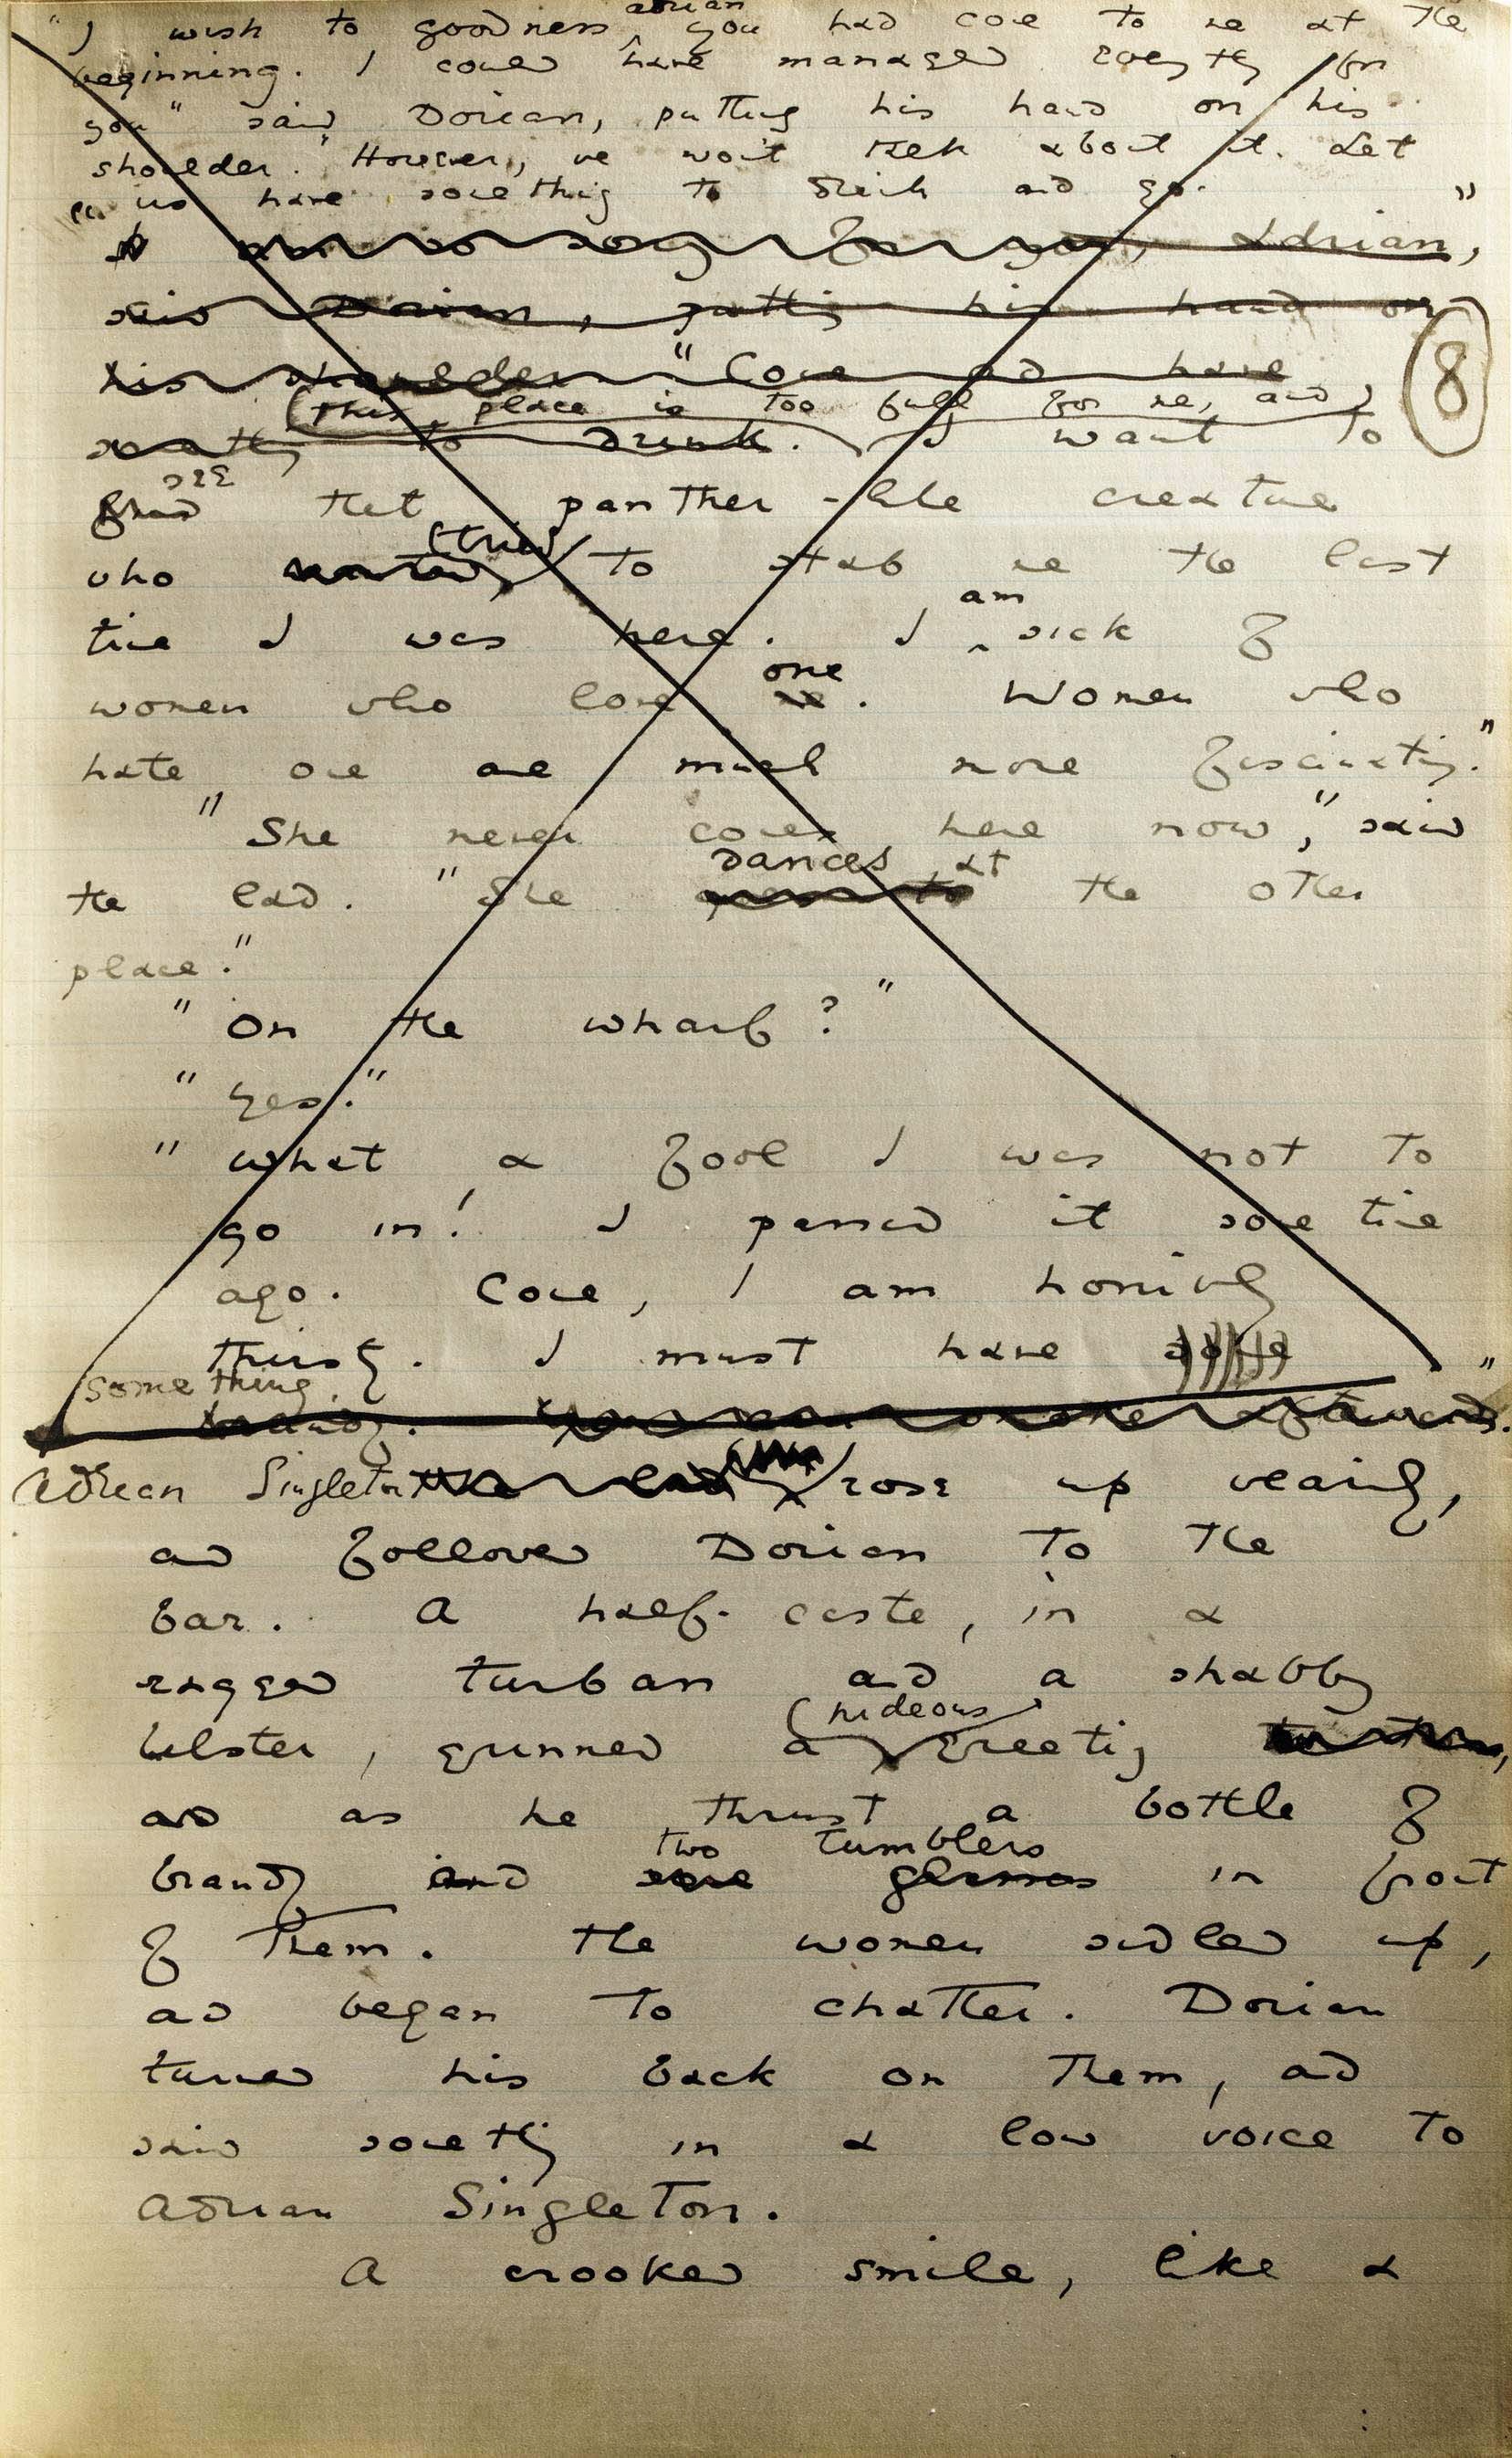 Adrian
"I wish to goodness you had come to me at the
beginning. I could have managed everything for
you" said Dorian, putting his hand on his
shoulder. "However, we won't talk about it. Let
us have something to drink and go.
"I am so sorry for you, Adrian,"
said Dorian, putting his hand on
his shoulder. "Come and have
8
this place is too full for me, and
something to drink. I want to
see
find that panther-like creature
tried
who wanted to stab me the last
am
time I was here. I sick of
one
women who love me. Women who
hate one are much more fascinating."
"She never comes here now," said
dances at
the lad. "She goes to the other
place."
"On the wharf?"
"Yes."
"What a fool I was not to
go in! I passed it some time
ago. Come, I am horribly
thirsty. I must have some
something.
brandy. You can smoke afterwards."
Adrian Singleton The lad rose up wearily,
and followed Dorian to the
bar. A half-caste, in a
ragged turban and a shabby
ulster, grinned a greeting to them,
hideous
and as he thrust a bottle of
two tumblers
brandy and some glasses in front
of them. The women sidled up,
and began to chatter. Dorian
turned his back on them, and
said something in a low voice to
Adrian Singleton.
A crooked smile, like a